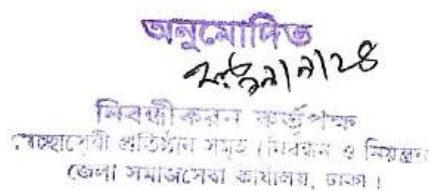 অনুমোদিত
নিবন্ধীকরন কর্তৃপক্ষ
স্বেচ্ছাসেবী প্রতিষ্ঠান সমূহ (নিবন্ধন ও নিয়ন্ত্রন
জেলা সমাজসেবা কার্যালয়, ঢাকা।